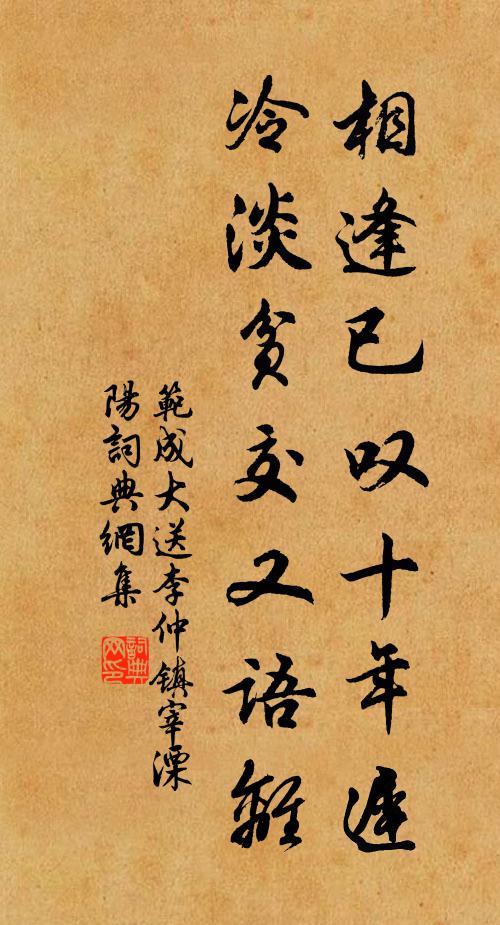 相逢已叹十年遲
冷淡貧交又語離
範成大送李仲鎮宰溧
陽詞典網集
詞典網印